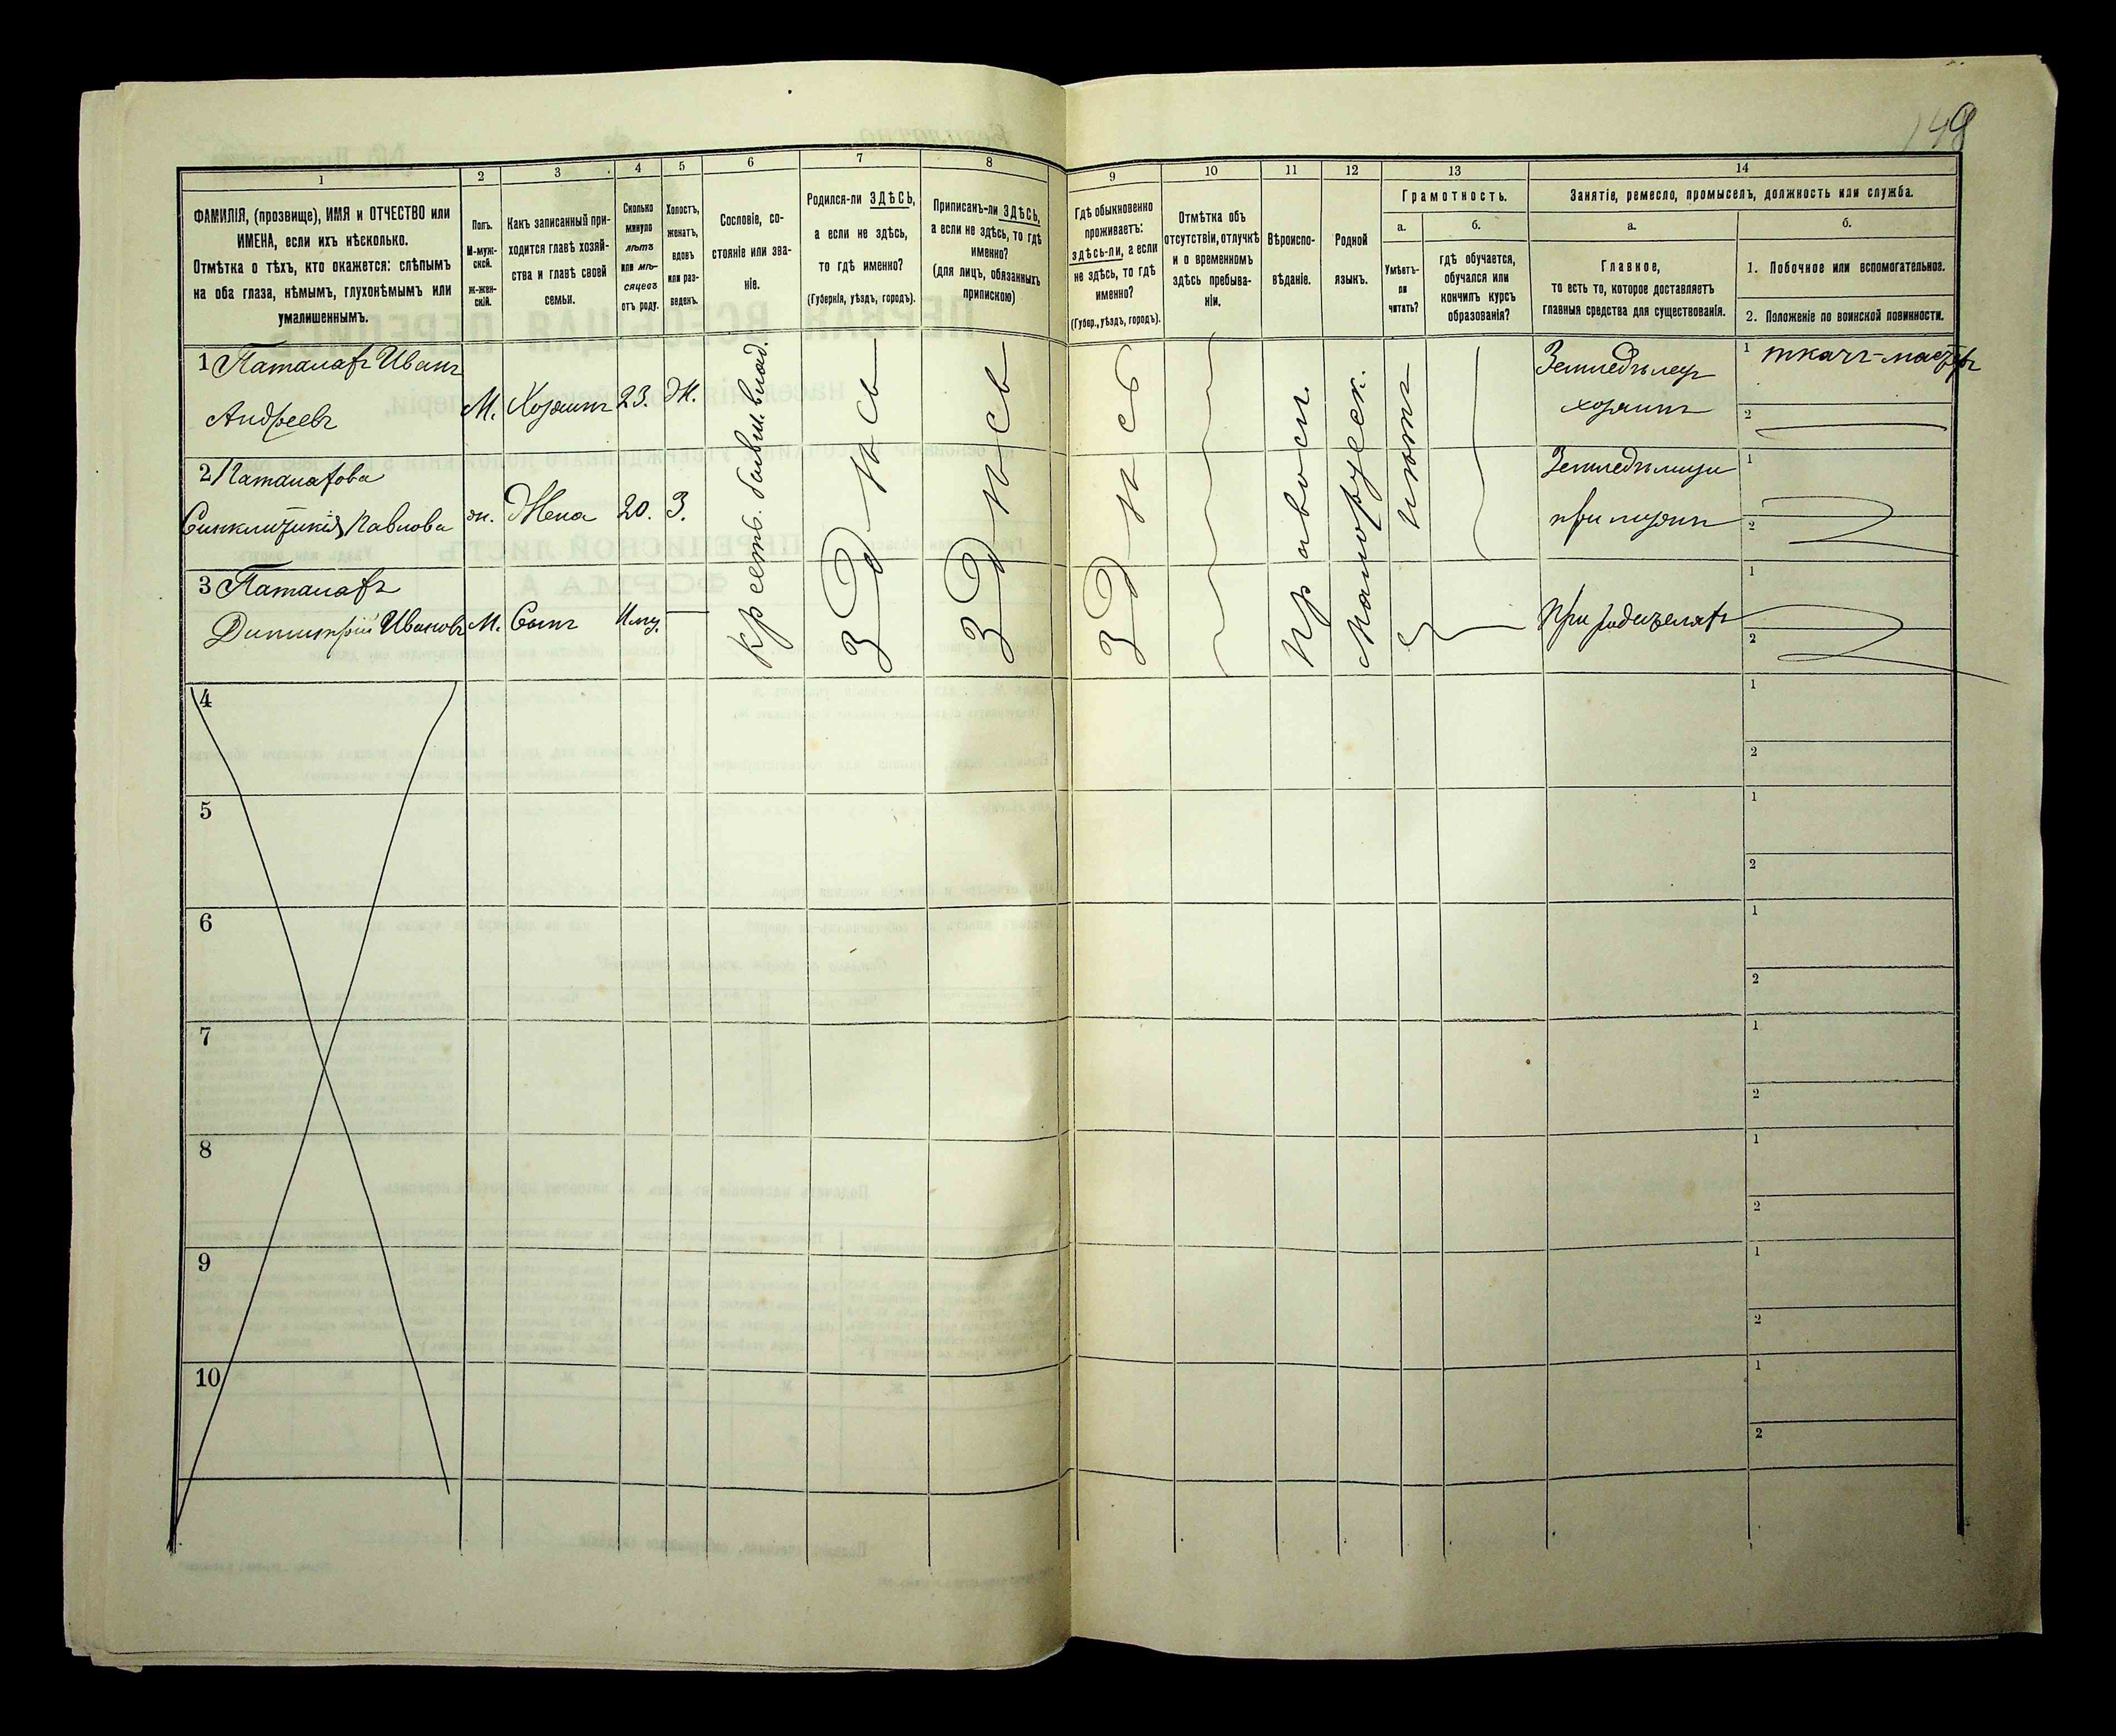 148
1
2
3
4
5
6
7
8
9
10
11
12
13
14
ФАМИЛІЯ, (прозвище), ИМЯ и ОТЧЕСТВО или
ИМЕНА, если ихъ нѣсколько.
Отмѣтка о тѣхъ, кто окажется: слѣпымъ
на оба глаза, нѣмымъ, глухонѣмымъ или
умалишеннымъ.
Полъ.
М-муж-
ской.
Ж-жен-
скій.
Какъ записанный при-
ходится главѣ хозяй-
ства и главѣ своей
семьи.
Сколько
минуло
лѣтъ
или мѣ-
сяцевъ
отъ роду.
Холостъ,
женатъ,
вдовъ
или раз-
веденъ.
Сословіе, со-
стояніе или зва-
ніе.
Родился-ли ЗДѢСЬ,
а если не здѣсь,
то гдѣ именно?
(Губернія, уѣздъ, городъ).
Приписанъ-ли ЗДѢСЬ,
а если не здѣсь, то гдѣ
именно?
(для лицъ, обязанныхъ
припискою)
Гдѣ обыкновенно
проживаетъ:
здѣсь-ли, а если
не здѣсь, то гдѣ
именно?
(Губер., уѣздъ, городъ).
Отмѣтка объ
отсутствіи, отлучкѣ
и о временномъ
здѣсь пребыва-
ніи.
Вѣроиспо-
вѣданіе.
Родной
языкъ.
Грамотность.
а.
б.
Умѣетъ-
ли
читать?
гдѣ обучается,
обучался или
кончилъ курсъ
образованія?
Занятіе, ремесло, промыселъ, должность или служба.
а.
б.
Главное,
то есть то, которое доставляетъ
главныя средства для существованія.
1. Побочное или вспомогательное.
2. Положеніе по воинской повинности.
1 Паталахъ Иванъ
Андреевъ
М.
Хозяинъ
23.
Ж.
Крестъ. бывш. влад.
Здѣсь
Здѣсь
Здѣсь
Православн.
Малорусск.
нѣтъ
Земледѣлец
хозяинъ
1 ткачъ-мастеръ
2
2 Паталахова
Синклитикія Павлова
ж.
Жена
20.
З.
Земледѣлица
при мужѣ
1
2
3 Паталахъ
Димитрій Ивановъ
М.
Сынъ
При родителяхъ
1
2
4
1
2
5
1
2
6
1
2
7
1
2
8
1
2
9
1
2
10
1
2